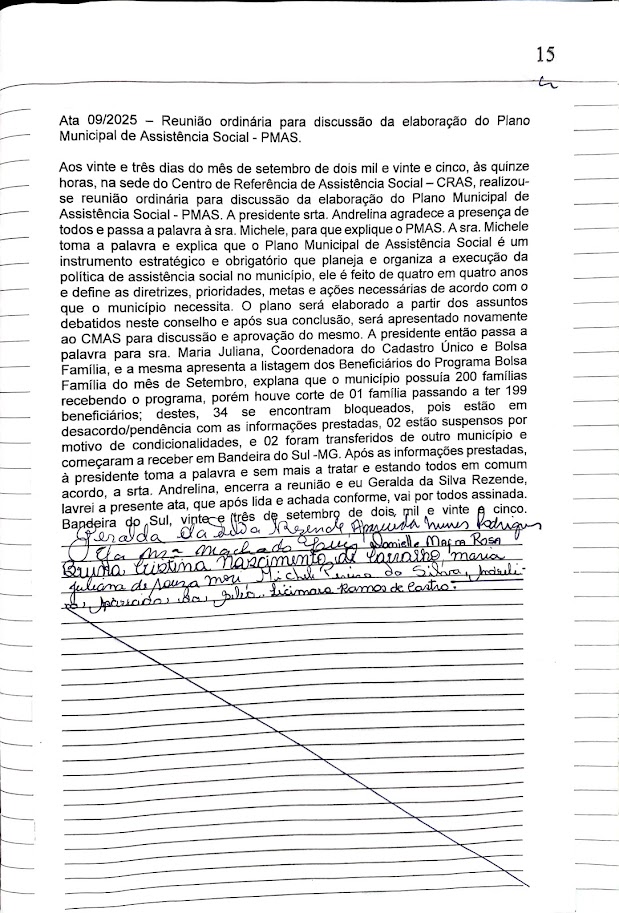 15
Ata 09/2025 – Reunião ordinária para discussão da elaboração do Plano
Municipal de Assistência Social - PMAS.
Aos vinte e três dias do mês de setembro de dois mil e vinte e cinco, às quinze
horas, na sede do Centro de Referência de Assistência Social – CRAS, realizou-
se reunião ordinária para discussão da elaboração do Plano Municipal de
Assistência Social - PMAS. A presidente srta. Andrelina agradece a presença de
todos e passa a palavra à sra. Michele, para que explique o PMAS. A sra. Michele
toma a palavra e explica que o Plano Municipal de Assistência Social é um
instrumento estratégico e obrigatório que planeja e organiza a execução da
política de assistência social no município, ele é feito de quatro em quatro anos
e define as diretrizes, prioridades, metas e ações necessárias de acordo com o
que o município necessita. O plano será elaborado a partir dos assuntos
debatidos neste conselho e após sua conclusão, será apresentado novamente
ao CMAS para discussão e aprovação do mesmo. A presidente então passa a
palavra para sra. Maria Juliana, Coordenadora do Cadastro Único e Bolsa
Família, e a mesma apresenta a listagem dos Beneficiários do Programa Bolsa
Família do mês de Setembro, explana que o município possuía 200 famílias
recebendo o programa, porém houve corte de 01 família passando a ter 199
beneficiários; destes, 34 se encontram bloqueados, pois estão em
desacordo/pendência com as informações prestadas, 02 estão suspensos por
motivo de condicionalidades, e 02 foram transferidos de outro município e
começaram a receber em Bandeira do Sul -MG. Após as informações prestadas,
à presidente toma a palavra e sem mais a tratar e estando todos em comum
acordo, a srta. Andrelina, encerra a reunião e eu Geralda da Silva Rezende,
lavrei a presente ata, que após lida e achada conforme, vai por todos assinada.
Bandeira do Sul, vinte e três de setembro de dois mil e vinte e cinco.
Geralda da Silva Rezende Aparecida Nunes Rodrigues
Machado Danielle Rosa
Bruna Cristina Nascimento de Carvalho, maria
juliana de souza Michele da Silva, Andreli-
na Aparecida Licimara Ramos de Castro.